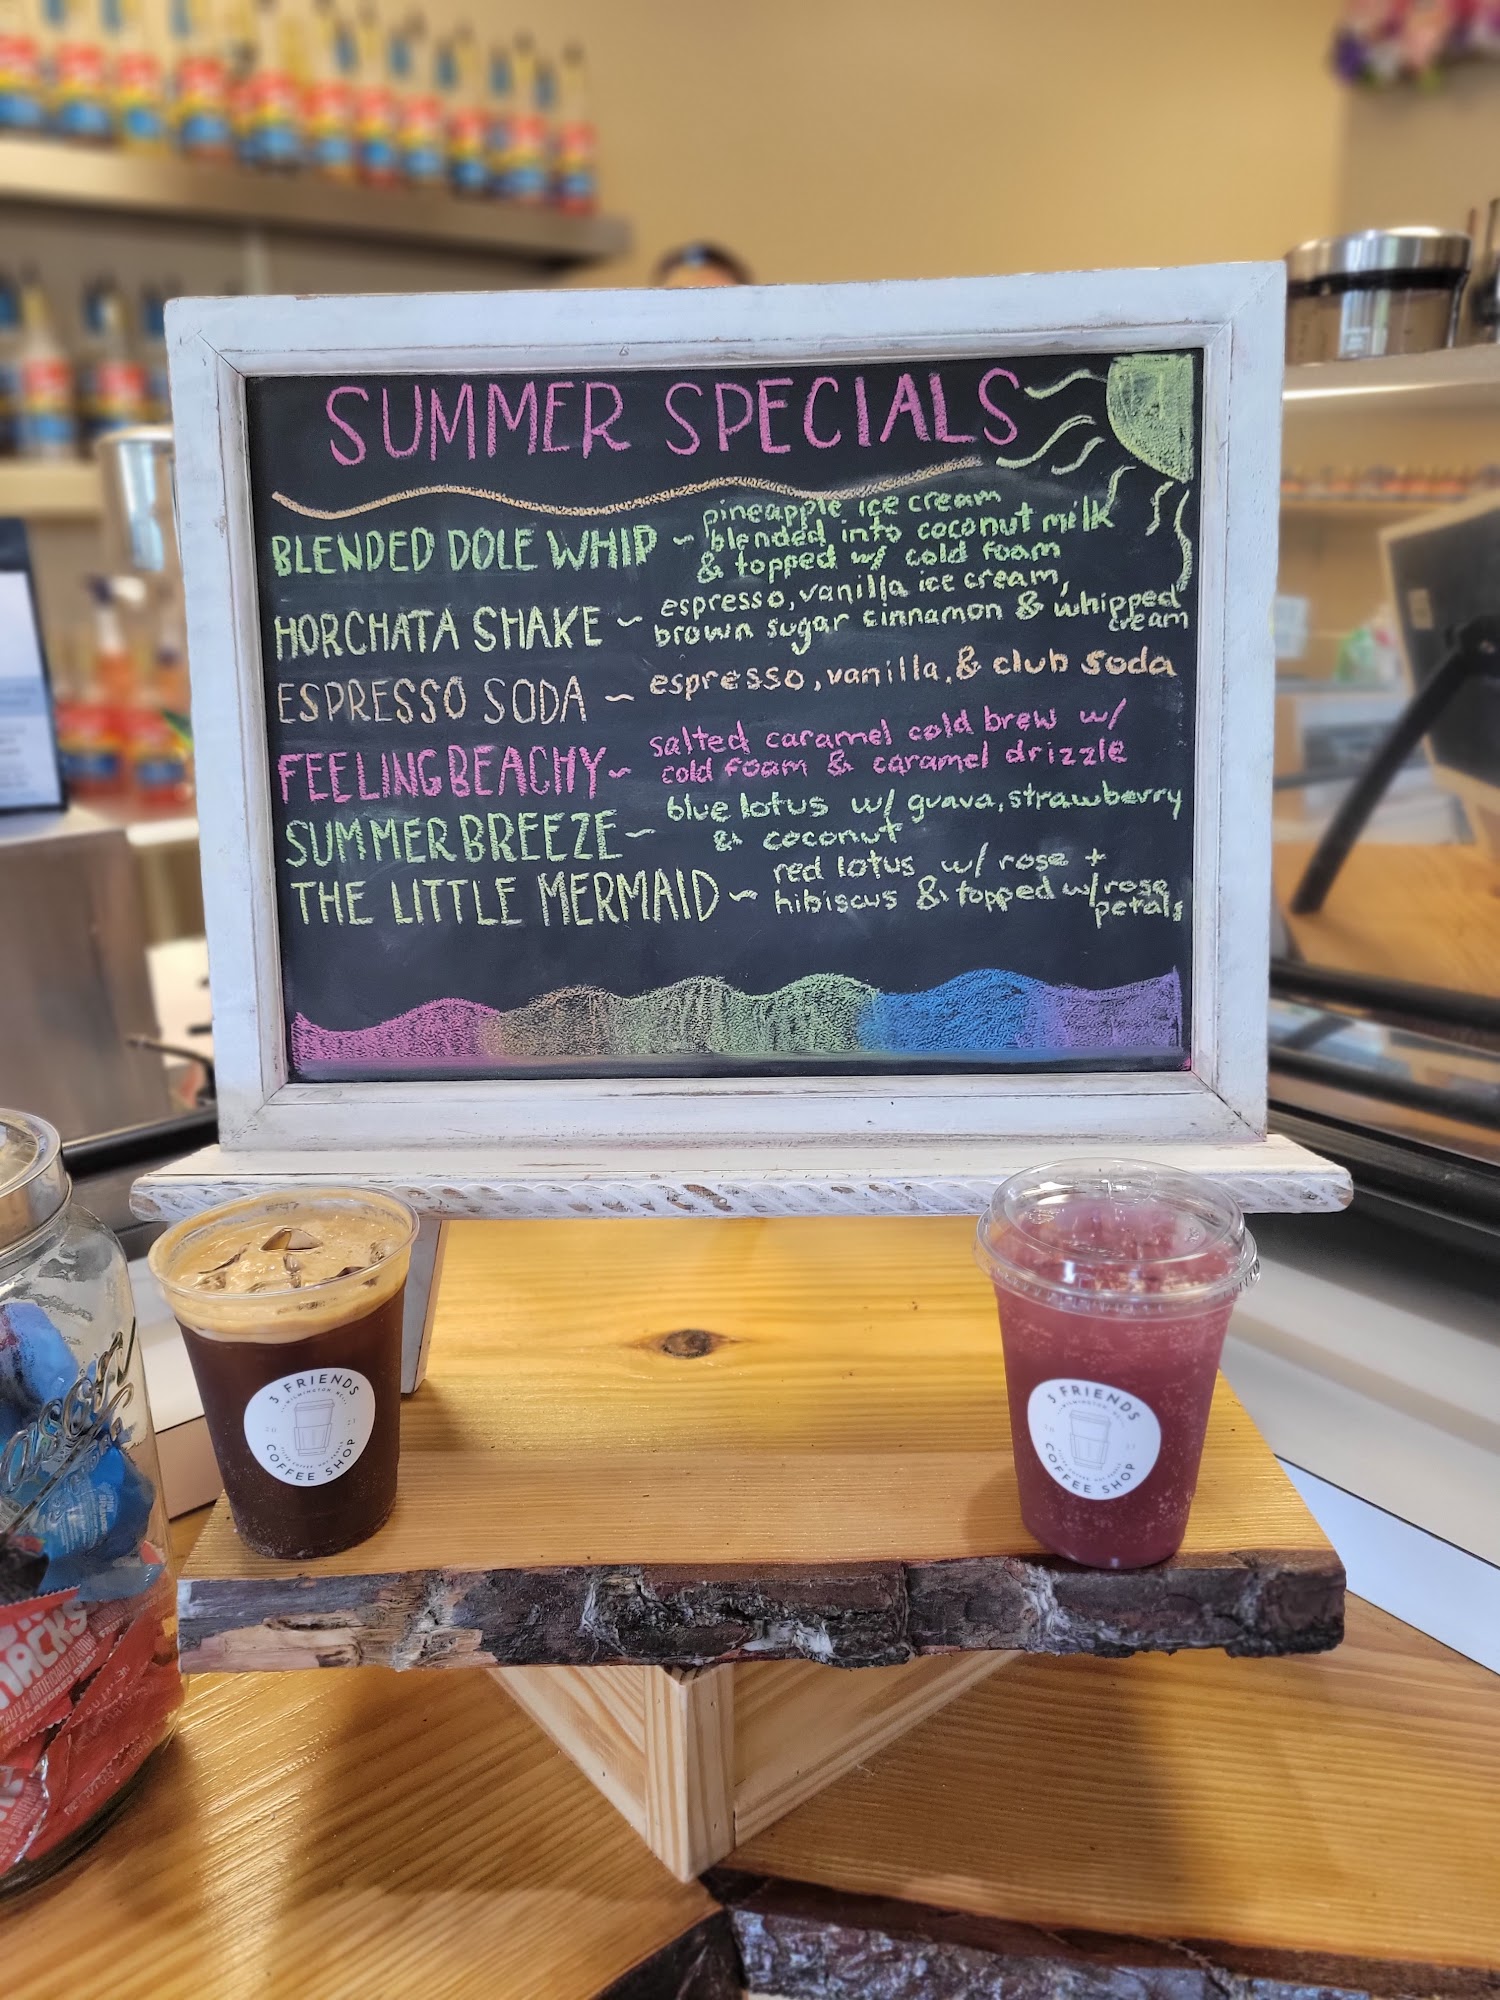 SUMMER SPECIALS
BLENDED DOLE WHIP ~ pineapple ice cream
blended into coconut milk
& topped w/ cold foam
HORCHATA SHAKE ~ espresso, vanilla ice cream,
brown sugar cinnamon & whipped
cream
ESPRESSO SODA ~ espresso, vanilla, & club soda
FEELING BEACHY ~ salted caramel cold brew w/
cold foam & caramel drizzle
SUMMER BREEZE ~ blue lotus w/ guava, strawberry
& coconut
THE LITTLE MERMAID ~ red lotus w/ rose +
hibiscus & topped w/ rose
petals
3 FRIENDS
COFFEE SHOP
3 FRIENDS
COFFEE SHOP